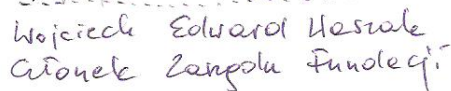 Wojciech Edward Haszak
Członek Zarządu Fundacji